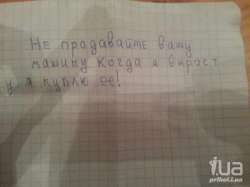 Не продавайте вашу
машину когда я вираст
у я куплю ее!
iUA